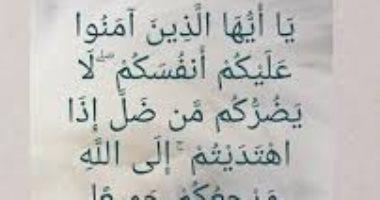 يَا أَيُّهَا الَّذِينَ آمَنُوا
عَلَيْكُمْ أَنفُسَكُمْ ۖ لَا
يَضُرُّكُم مَّن ضَلَّ إِذَا
اهْتَدَيْتُمْ ۚ إِلَى اللَّهِ
مَرْجِعُكُمْ جَمِيعًا